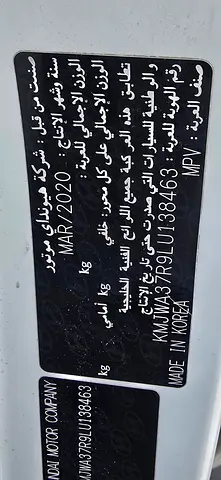 صنعت من قبل : شركة هيونداي موتور
سنة وشهر الإنتاج : MAR/2020
الوزن الإجمالي للعربة : kg
الوزن الإجمالي على كل محور: خلفي kg أمامي kg
تطابق هذه المركبة جميع اللوائح الفنية الخليجية
والوطنية للسيارات التي صدرت حتى تاريخ الإنتاج
رقم الهوية للعربة : KMJWA37R9LU138463
صنف العربة : MPV
MADE IN KOREA
NDAI MOTOR COMPANY
MJWA37R9LU138463